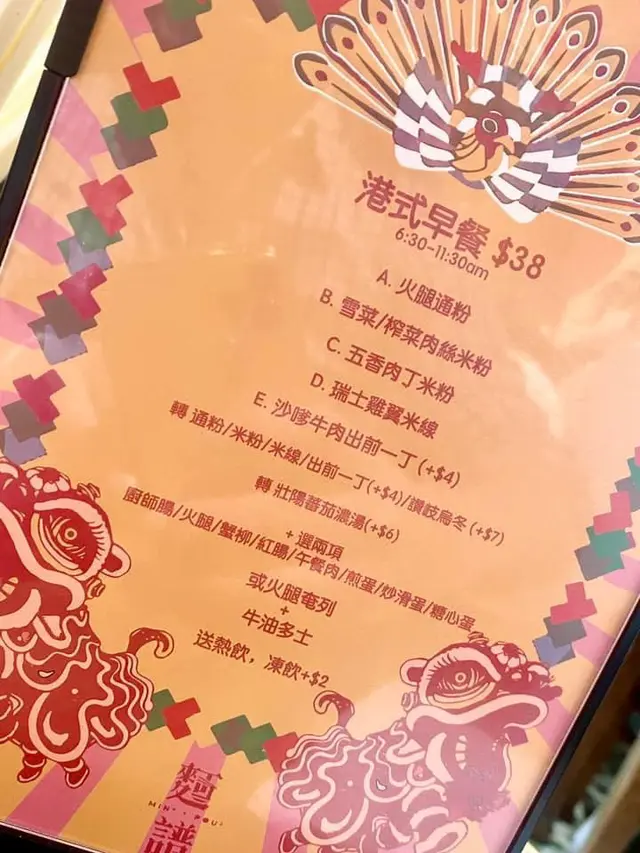 港式早餐 $38
6:30-11:30am
A. 火腿通粉
B. 雪菜/榨菜肉絲米粉
C. 五香肉丁米粉
D. 瑞士雞翼米線
E. 沙嗲牛肉出前一丁 (+$4)
轉 通粉/米粉/米線/出前一丁(+$4)/讚岐烏冬 (+$7)
轉 壯陽蕃茄濃湯(+$6)
+ 選兩項
廚師腸/火腿/蟹柳/紅腸/午餐肉/煎蛋/炒滑蛋/糖心蛋
或火腿奄列
+
牛油多士
送熱飲，凍飲+$2
麵
譜